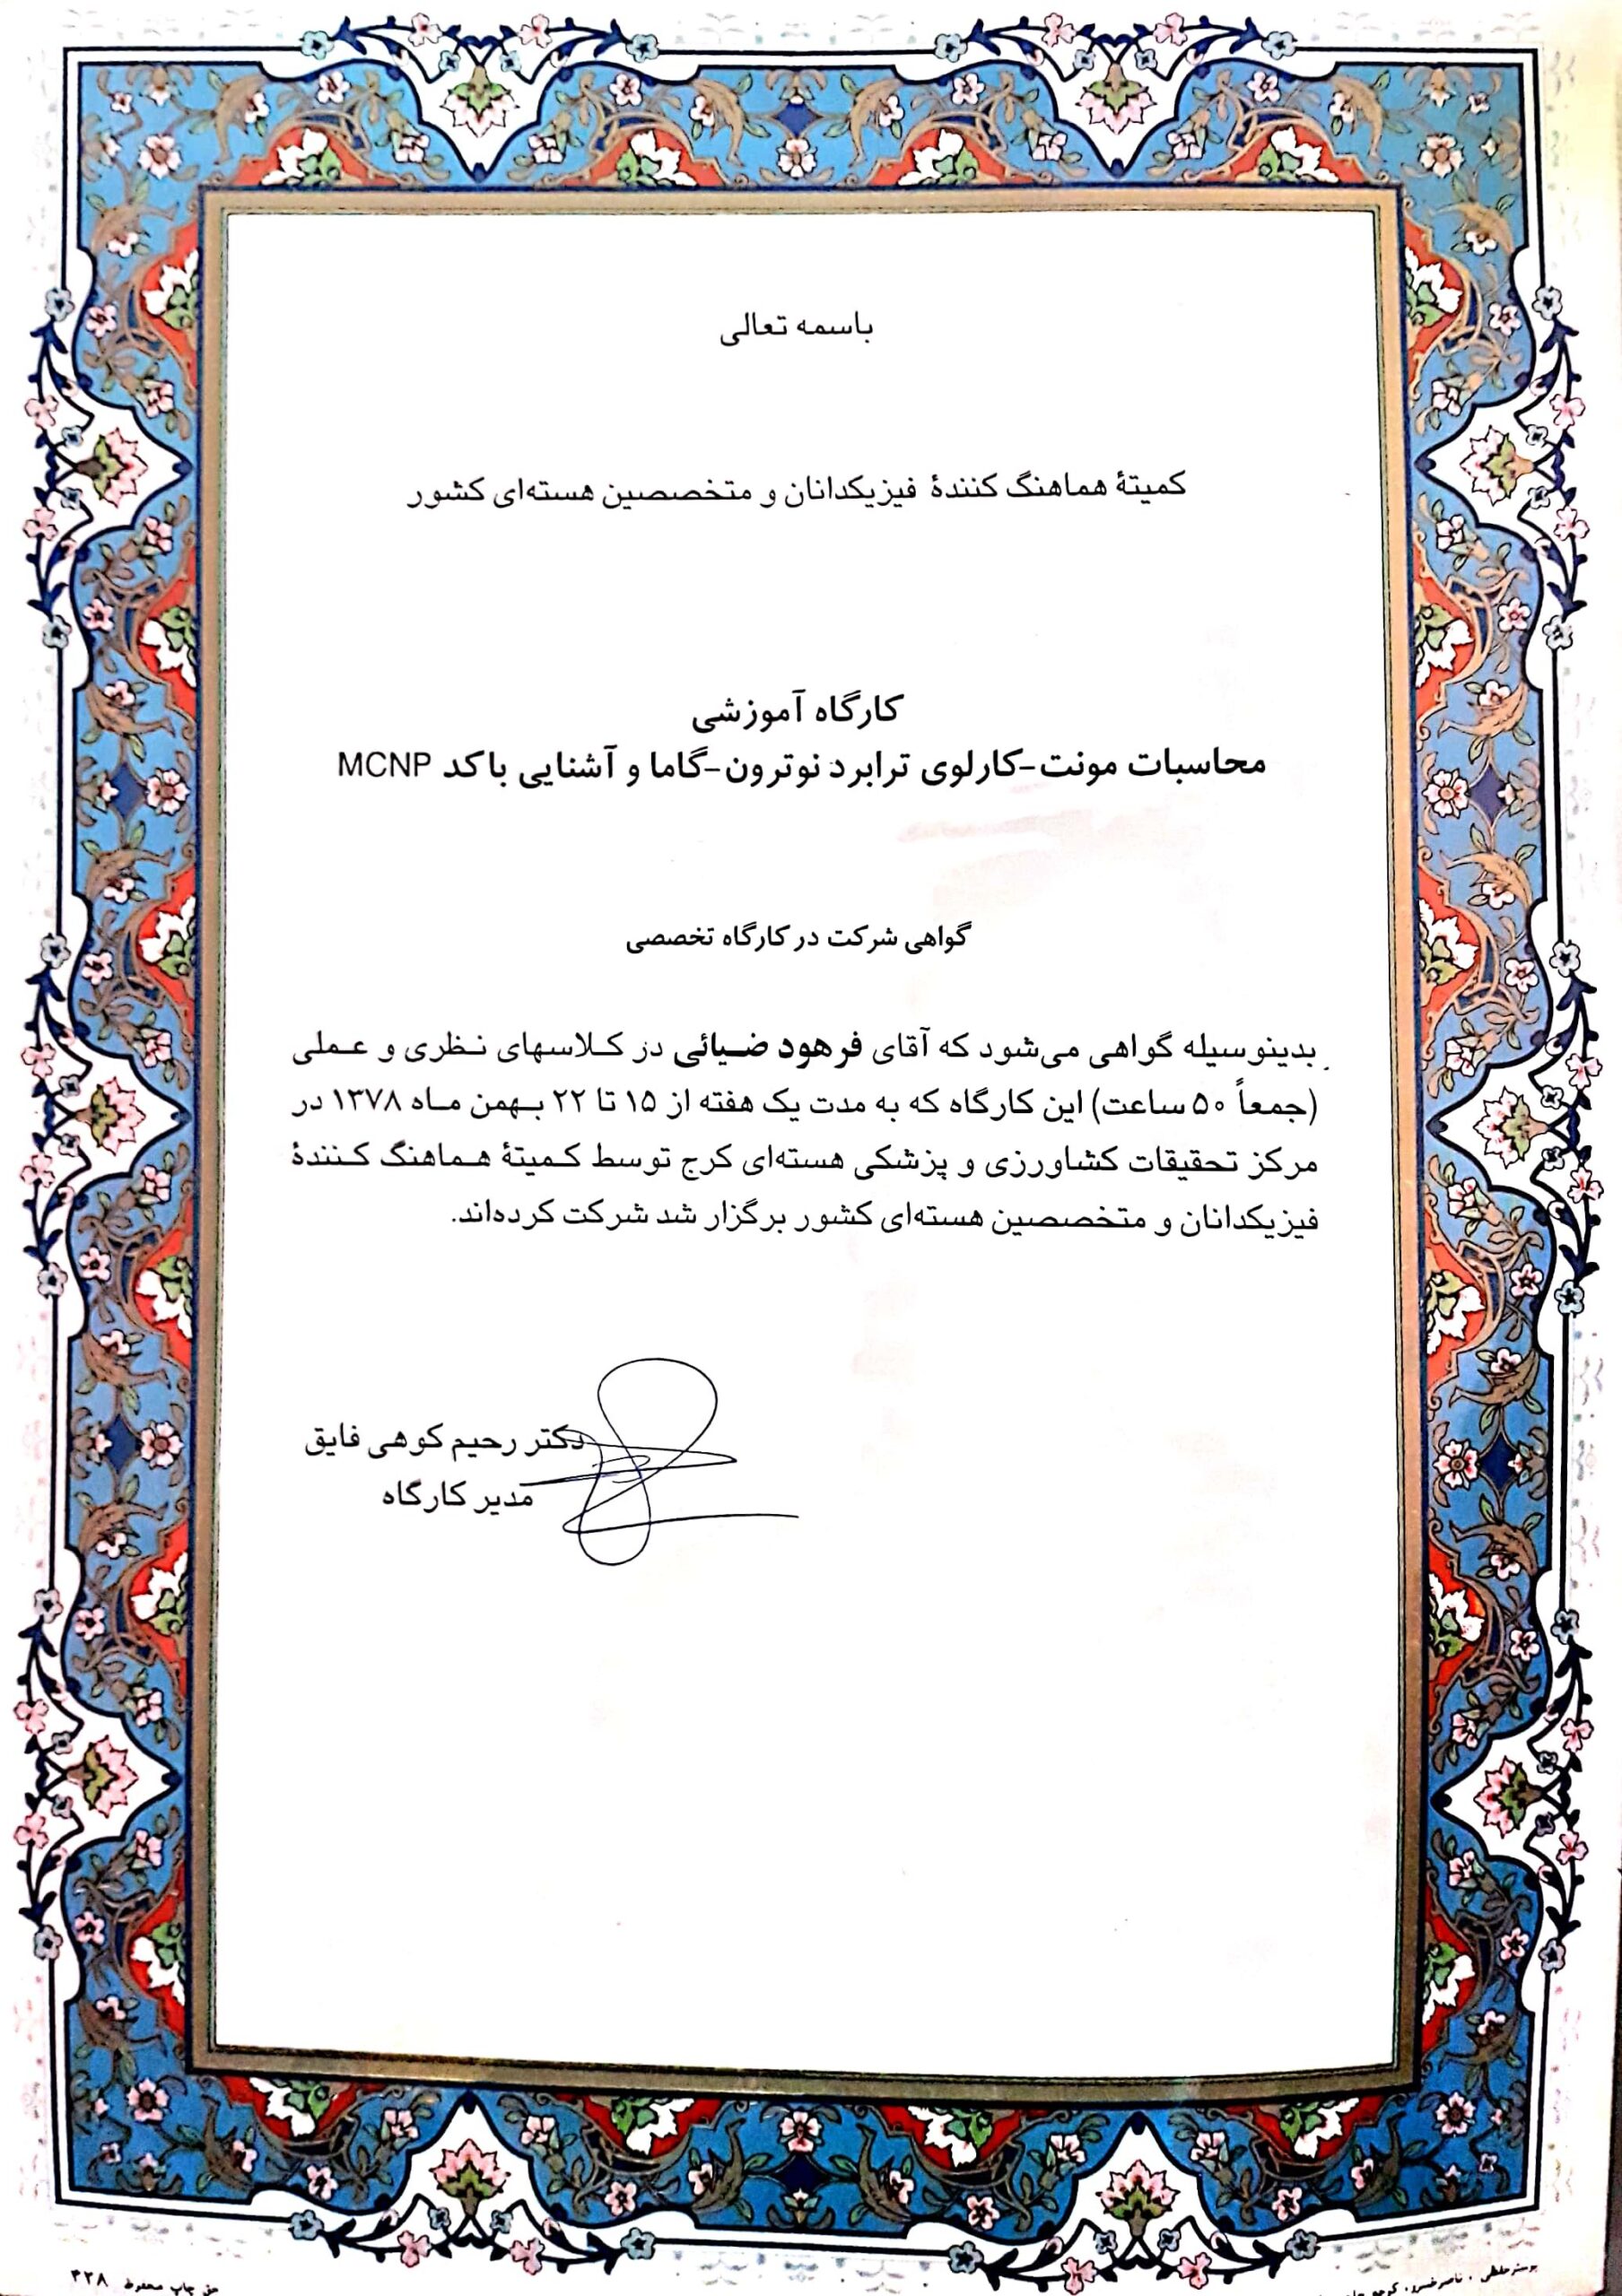 باسمه تعالی
کمیتهٔ هماهنگ کنندهٔ فیزیکدانان و متخصصین هسته‌ای کشور
کارگاه آموزشی
محاسبات مونت-کارلوی ترابرد نوترون-گاما و آشنایی با کد MCNP
گواهی شرکت در کارگاه تخصصی
بدینوسیله گواهی می‌شود که آقای فرهود ضیائی در کلاسهای نظری و عملی
(جمعاً ۵۰ ساعت) این کارگاه که به مدت یک هفته از ۱۵ تا ۲۲ بهمن ماه ۱۳۷۸ در
مرکز تحقیقات کشاورزی و پزشکی هسته‌ای کرج توسط کمیتهٔ هماهنگ کنندهٔ
فیزیکدانان و متخصصین هسته‌ای کشور برگزار شد شرکت کرده‌اند.
دکتر رحیم کوهی فایق
مدیر کارگاه
ناصرخسرو، کوچه
حق چاپ محفوظ ۴۲۸